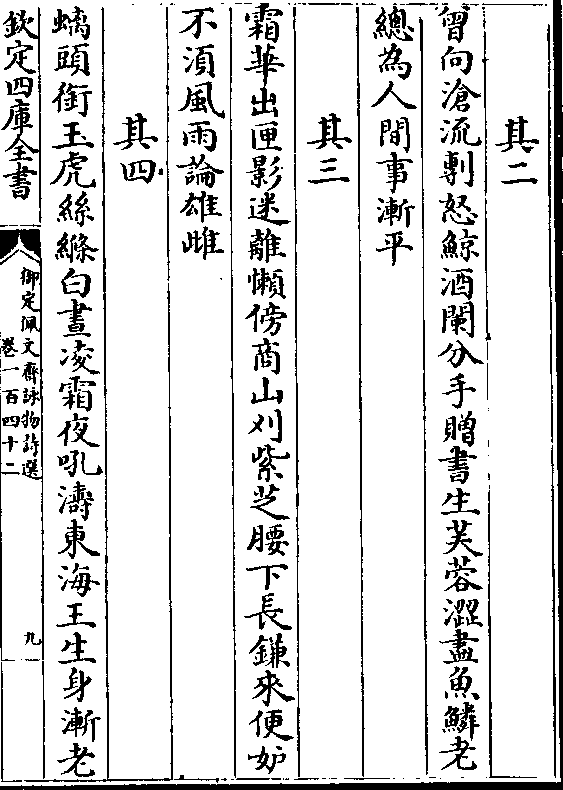 其二
曾向滄流剸怒鯨酒闌分手贈書生芙蓉澀盡魚鱗老
總為人間事漸平
其三
霜華出匣影迷離懶傍商山刈紫芝腰下長鎌來便妒
不湏風雨論雄雌
其四
螭頭銜玉虎絲縧白晝凌霜夜吼濤東海王生身漸老
欽定四庫全書
御定佩文齋詠物詩選
卷一百四十二
九